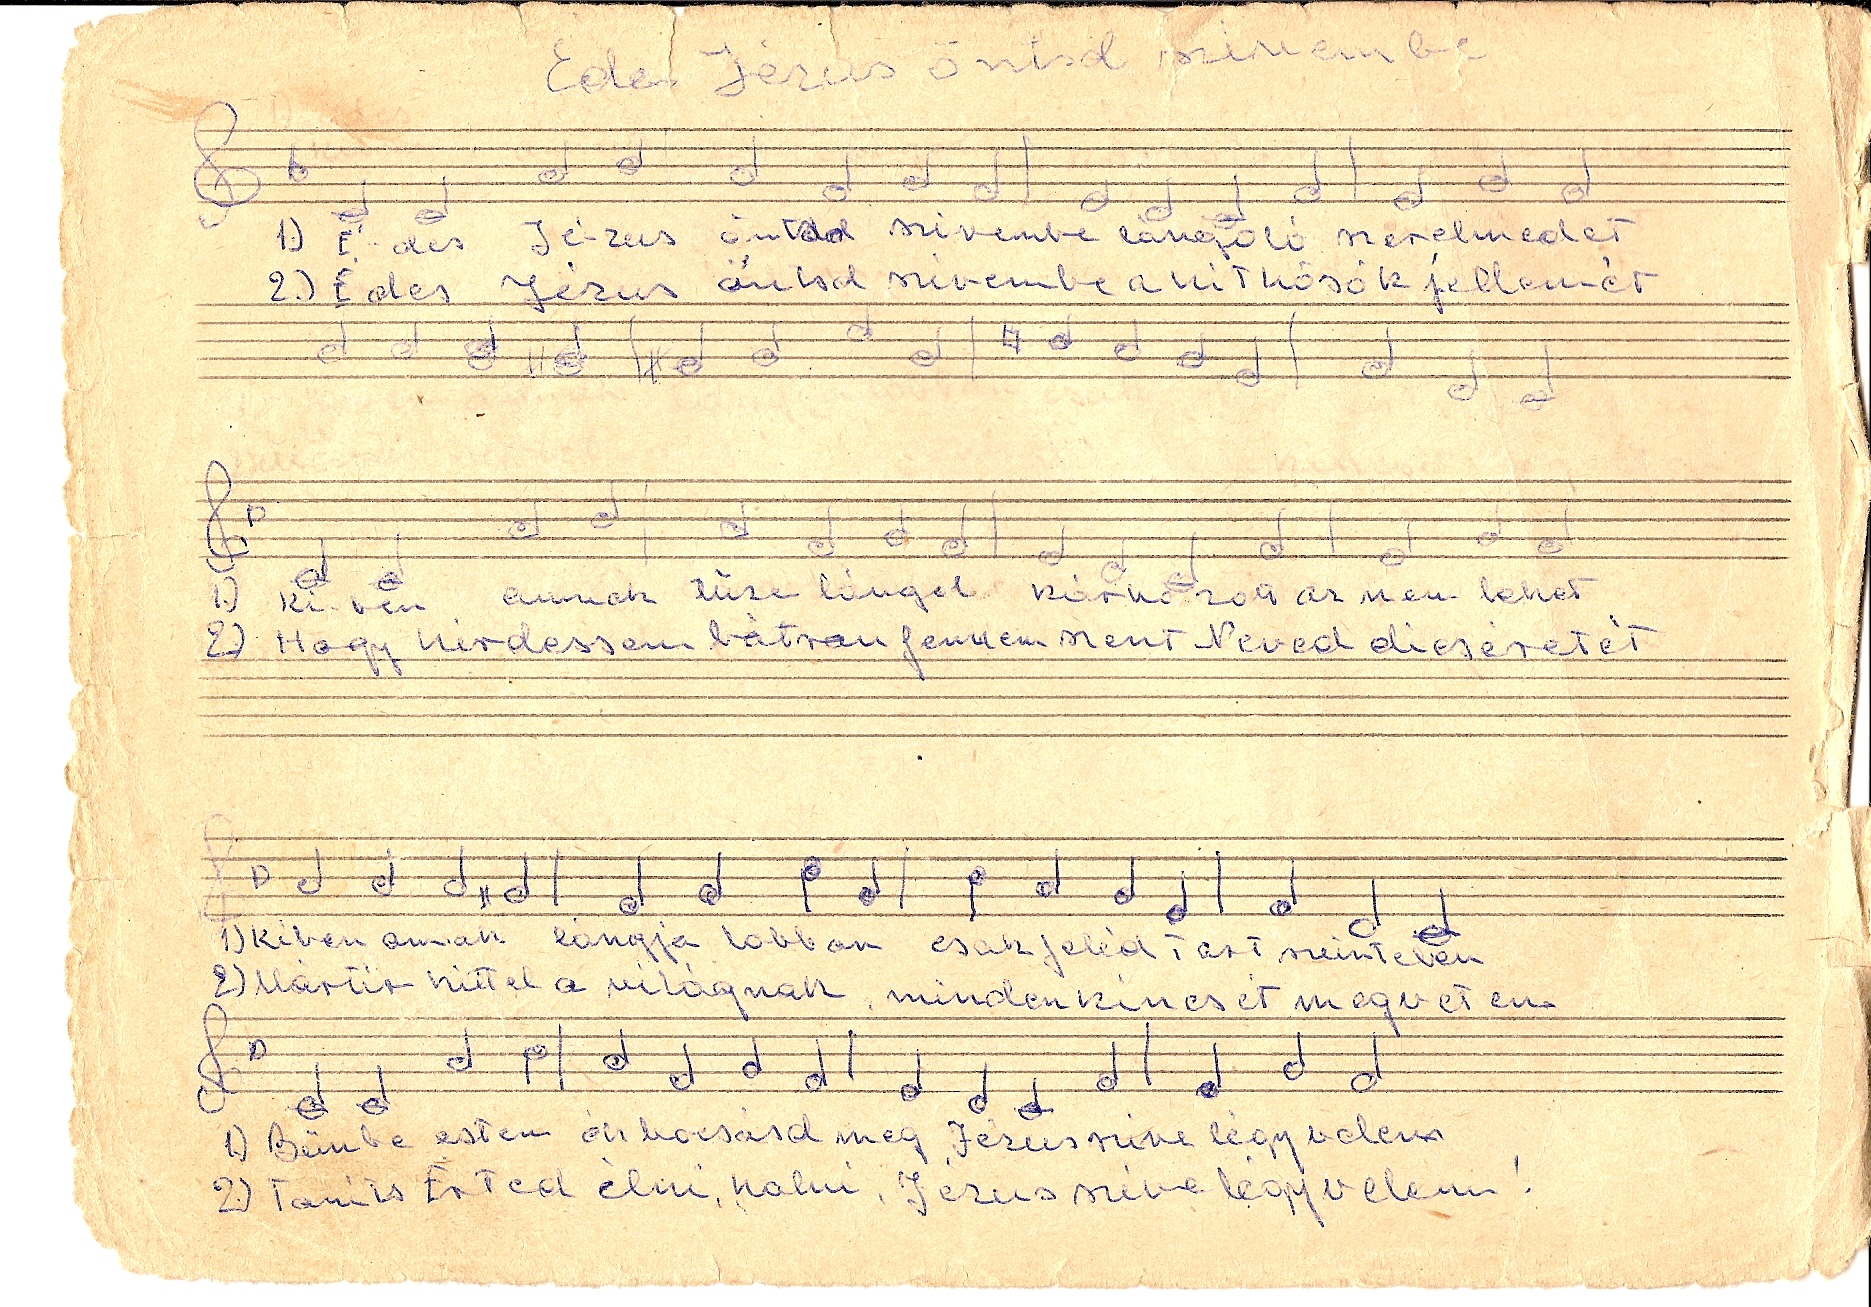 Édes Jézus öntsd szivembe
1.) É-des Jé-zus öntsd szivembe lángoló szerelmedet
2.) Édes Jézus öntsd szivembe a hithősök jellemét
1) Ki-ben annak tüze lángol kárhozott az nem lehet
2) Hogy hirdessem bátran fennem szent Neved dicséretét
1) Kiben annak lángja lobban csak feléd tart szüntelen
2) Mártir hittel a világnak, minden kincsét megvetem
1) Bünbe estem óh bocsásd meg Jézus szive légy velem
2) Tanits Érted élni, halni, Jézus szive légy velem!